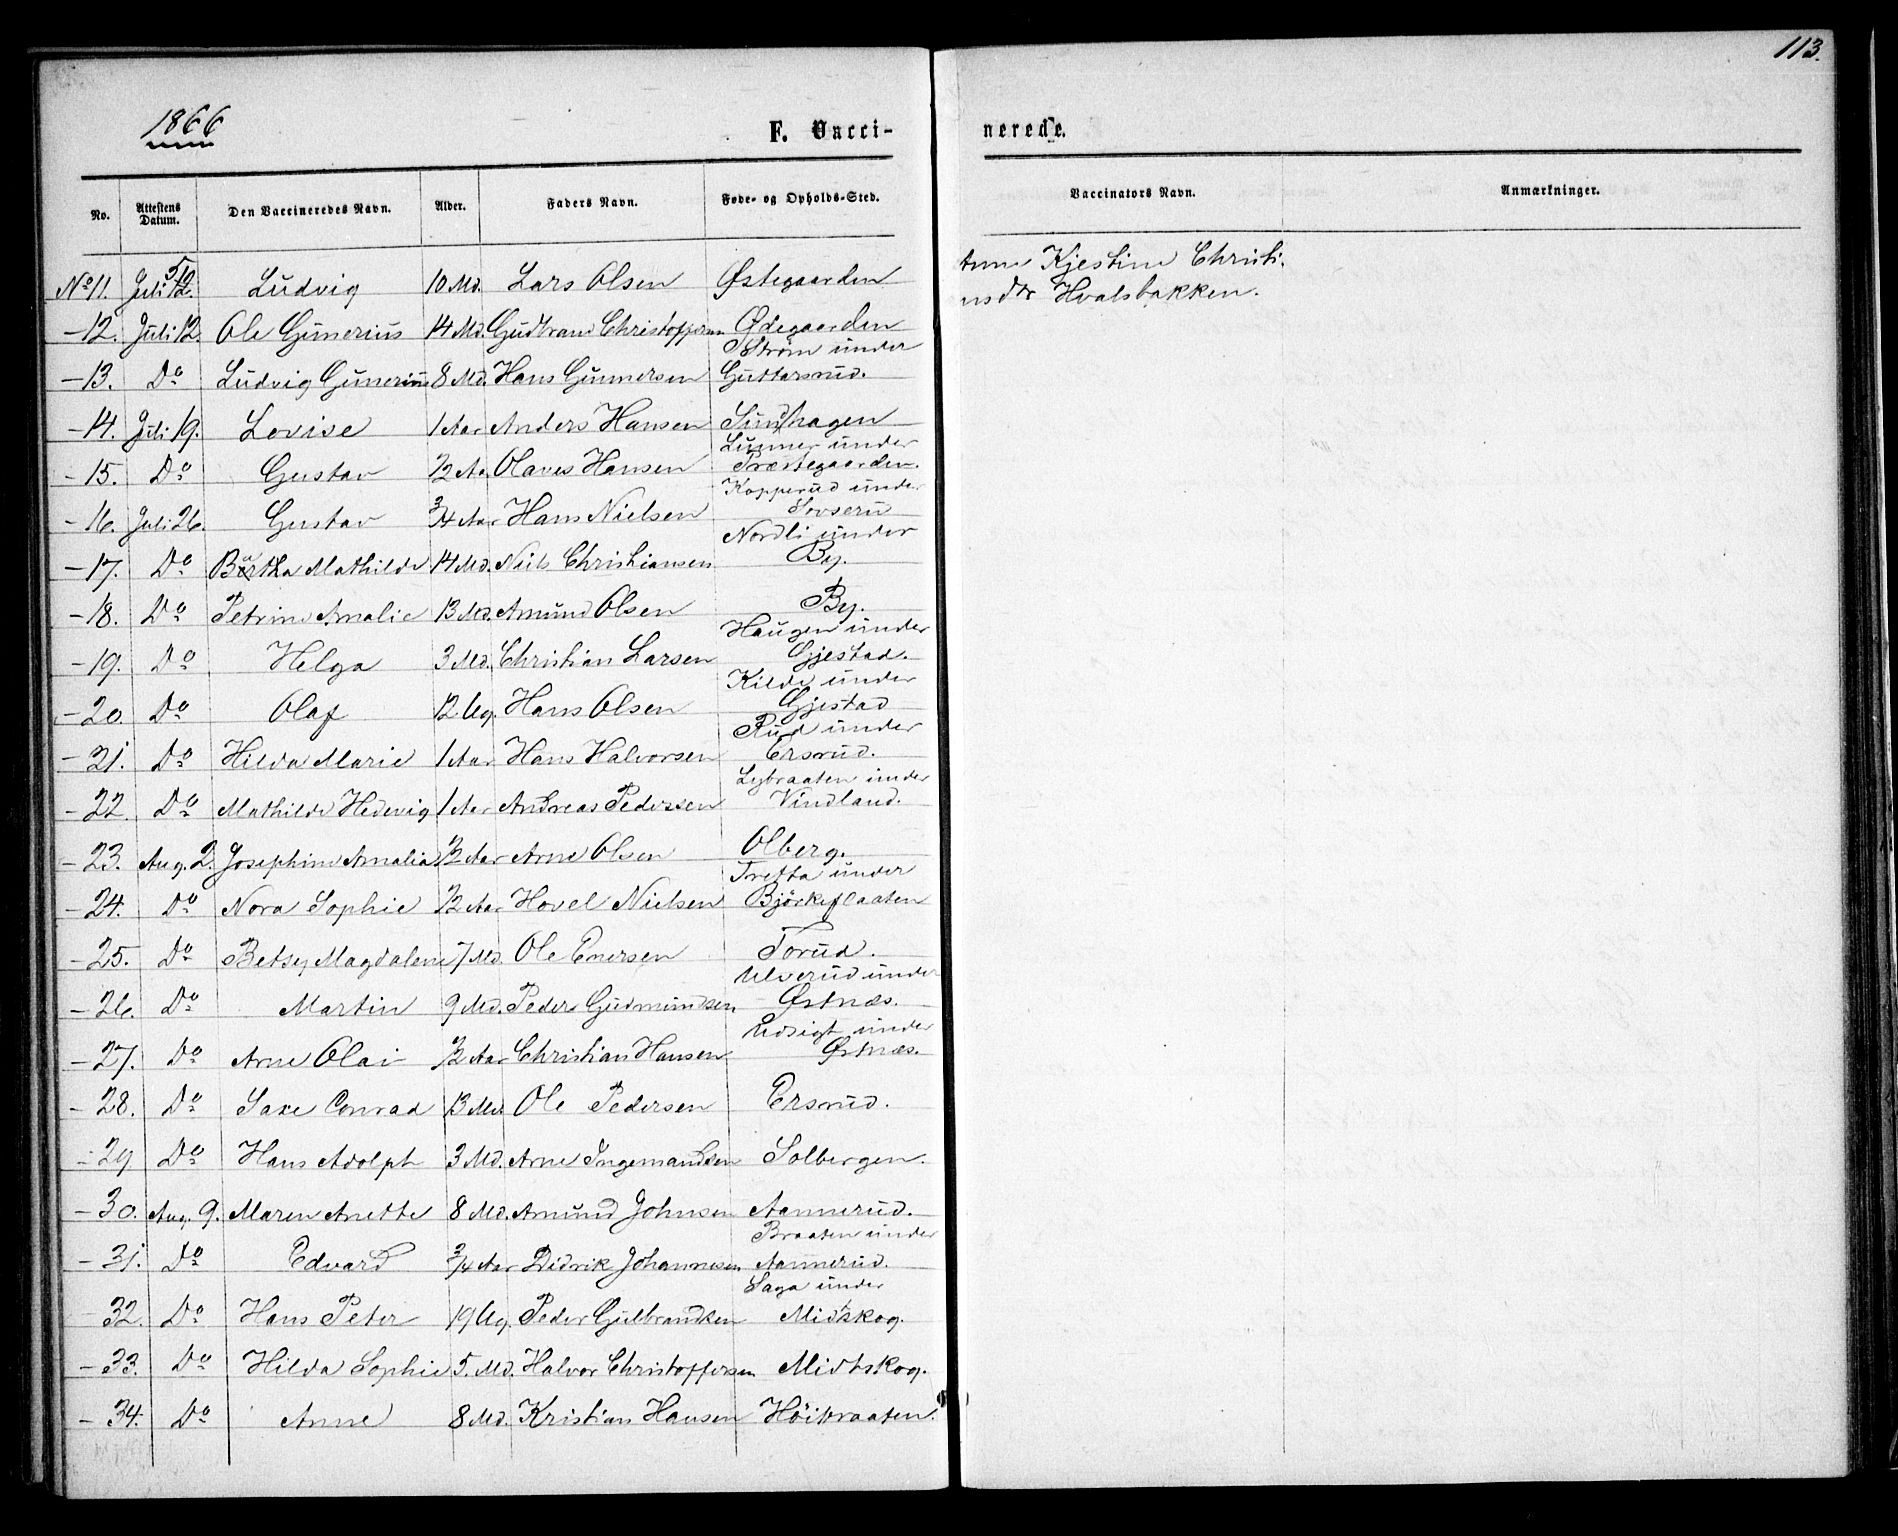 113.
1866
F. Vacci-
nerede.
No.
Attestens Datum.
Den Vaccineredes Navn.
Alder.
Faders Navn.
Føde- og Opholds-Sted.
Vaccinators Navn.
Anmærkninger.
No 11. Juli 12. Ludvig 10 Md. Lars Olsen Østegaarden
Anne Kjestine Christi.
nsdtr Hvalsbakken.
-12. Juli 12. Ole Gunerius 14 Md. Gudbrand Christoffersen Ødegaarden
Strøm under
-13. Do Ludvig Gunerius 8 Md. Hans Gunnersen Guttersrud.
-14. Juli 19. Lovise 1 Aar Anders Hansen Sundhagen
Lunner under
-15. Do Gustav 1/2 Aa Olaves Hansen Præstegaarden.
Kopperud under
-16. Juli 26. Gustav 3/4 Aar Hans Nielsen
Nordli under
-17. Do Bertha Mathilde 14 Md. Niels Christiansen By.
-18. Do Petrine Amalie 13 Md. Amund Olsen By.
Haugen under
-19. Do Helga 3 Md. Christian Larsen Gjestad.
Kilde under
-20. Do Olaf 12 Ug. Hans Olsen Gjestad
Rud under
-21. Do Hilda Marie 1 Aar Hans Halvorsen Ersrud.
Lybraaten under
-22. Do Mathilde Hedevig 1 Aar Andreas Pederssen Vindland.
-23. Aug. 2. Josephine Amalia 1/2 Aar Arne Olsen Olberg.
Tretta under
-24. Do Nora Sophie 1/2 Aar Hovel Nielsen Björkeflaaten
-25. Do Betsey Magdalene 7 Md. Ole Enersen Torud.
Ulverud under
-26. Do Martin 9 Md. Peder Gudmundsen Østnæs.
Udsigt under
-27. Do Arne Olai 1/2 Aar Christian Hansen Østnæs.
-28. Do Saxe Conrad 13 Md. Ole Pedersen Ersrud.
-29 Do Hans Adolph 3 Md. Arne Ingemandsen Solbergen.
-30. Aug. 9. Maren Anette 8 Md. Amund Johnsen Aannerud.
Braaten under
-31. Do Edvard 3/4 Aar Didrik Johannesen Aannerud.
Saga under
32. Do Hans Peter 19 Ug. Peder Gulbrandsen Midtskog.
-33. Do Hilda Sophie 5. Md. Halvor Christoffersen Midtskog.
-34. Do Anne 8 Md. Kristian Hansen Höibraaten.